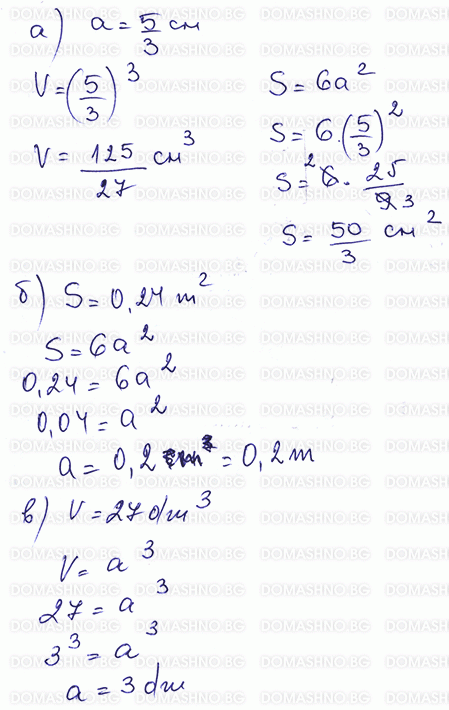 а) a = 5/3 см
V = (5/3)^3
V = 125/27 см^3
S = 6a^2
S = 6.(5/3)^2
S = ^2 6. 25/9 3
S = 50/3 см^2
б) S = 0,24 m^2
S = 6a^2
0,24 = 6a^2
0,04 = a^2
a = 0,2 = 0,2 m
в) V = 27 dm^3
V = a^3
27 = a^3
3^3 = a^3
a = 3 dm
DOMASHNO.BG